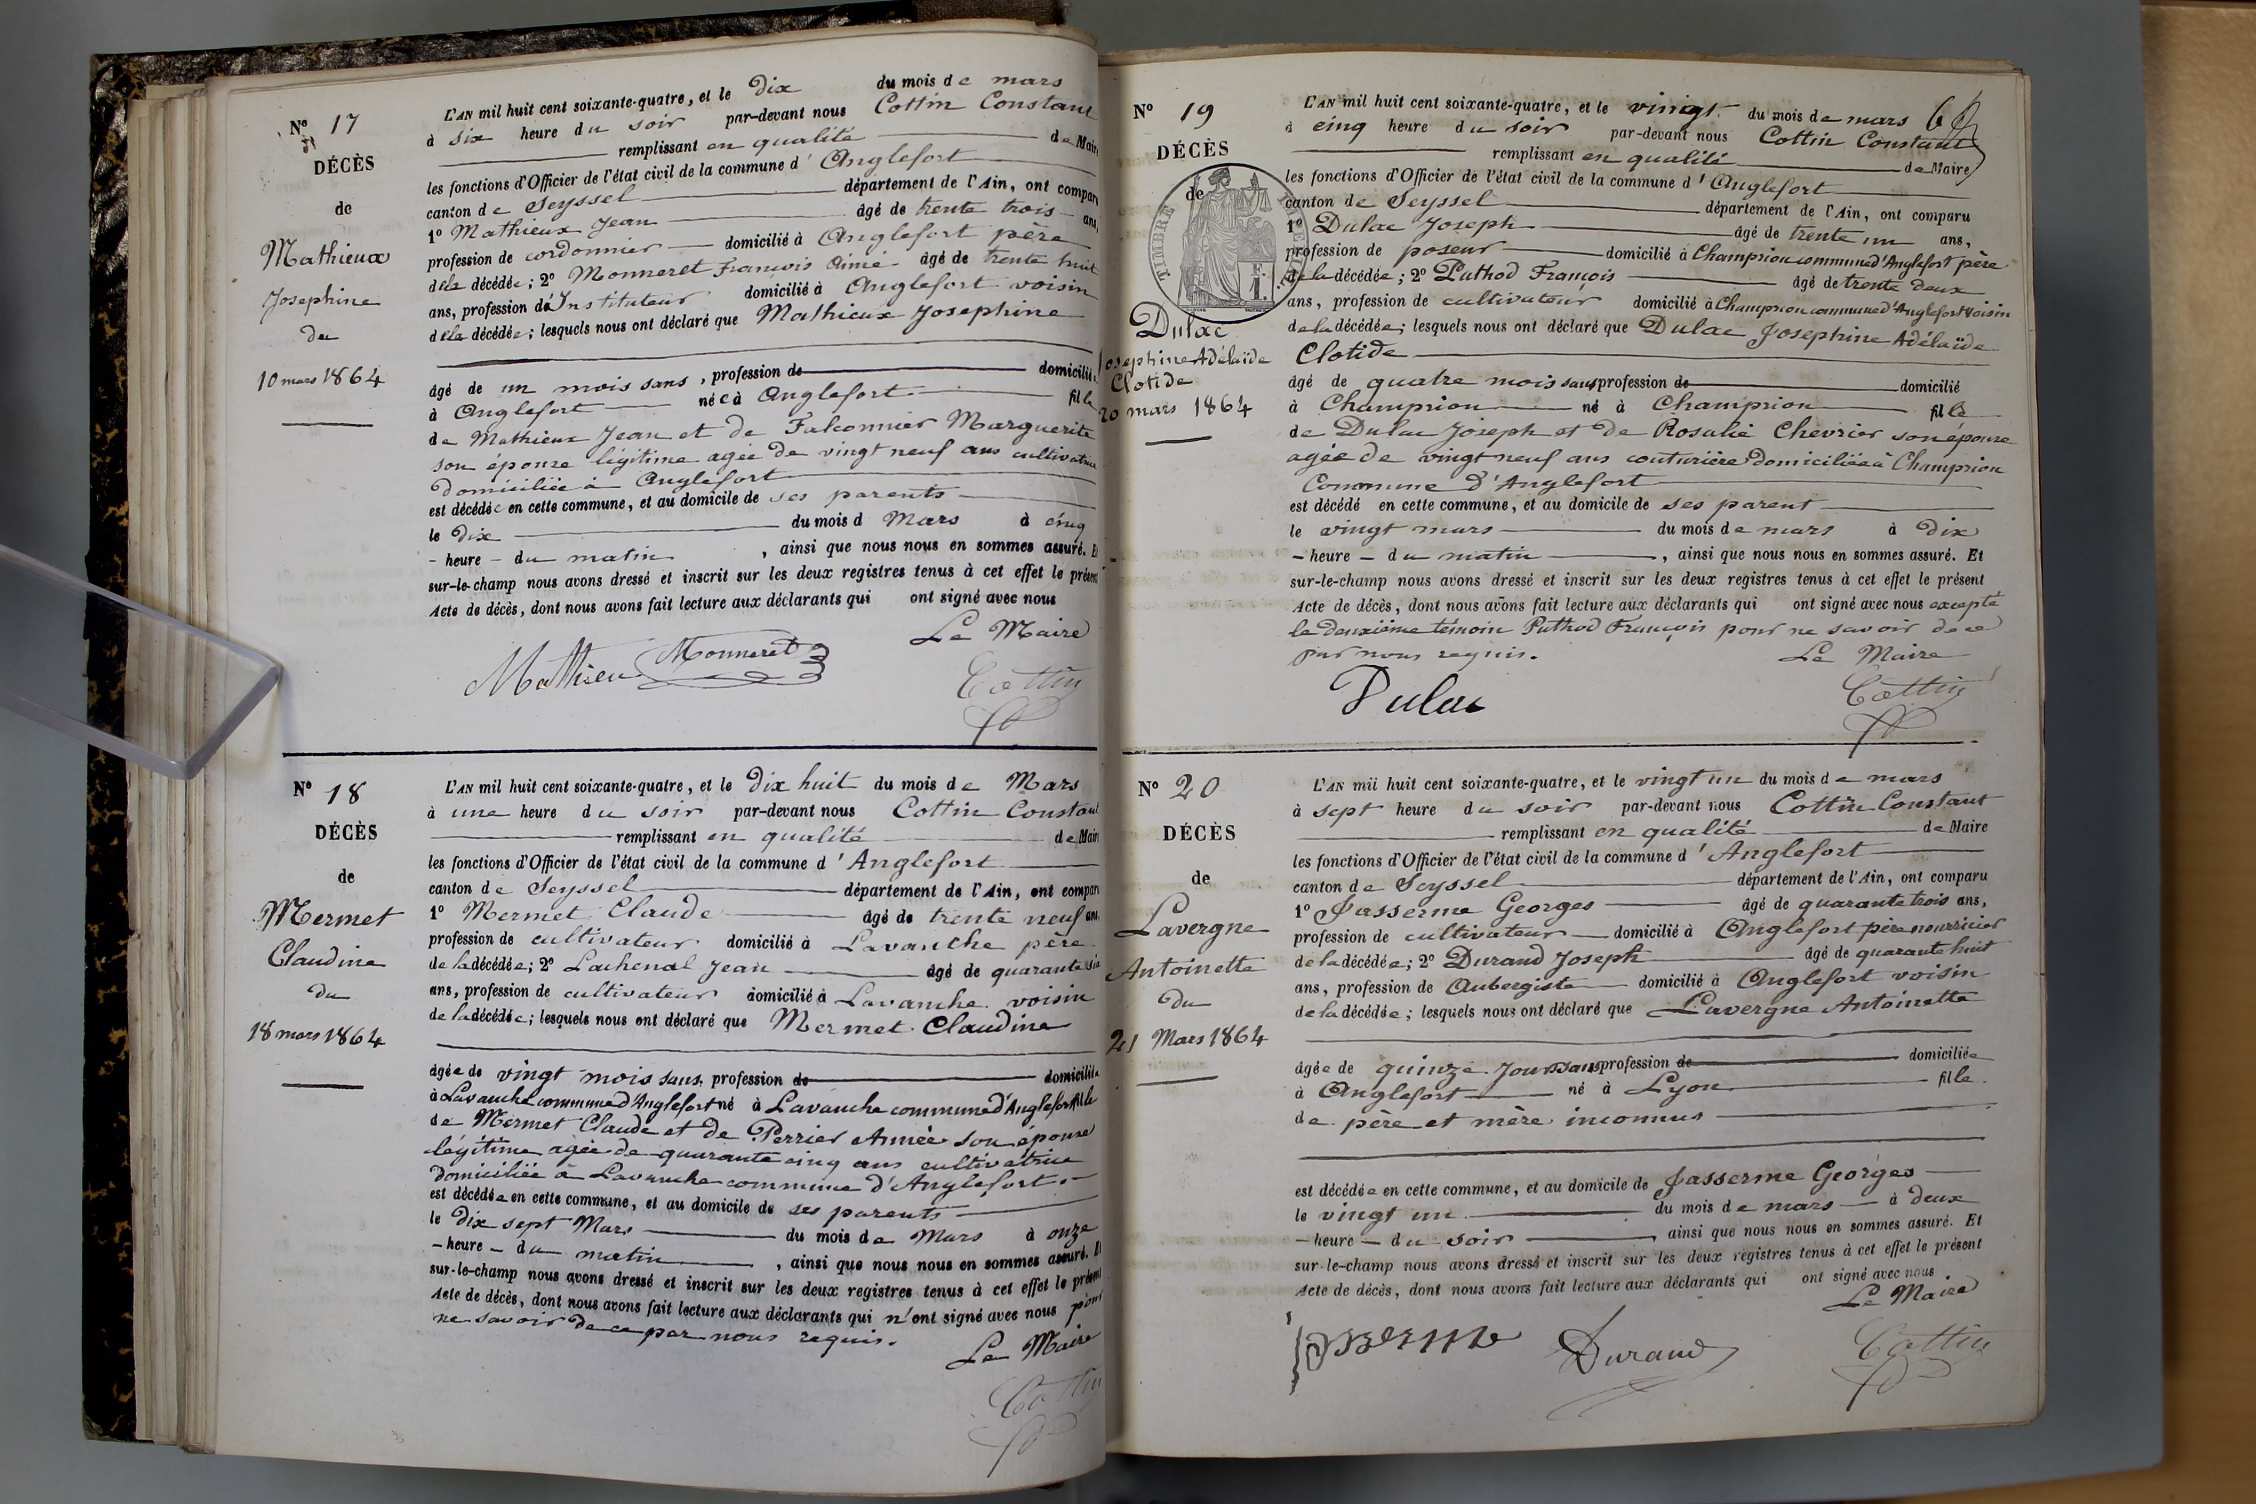 N° 17
DÉCÈS
de
Mathieux
Josephine
du
10 mars 1864
L'AN mil huit cent soixante-quatre, et le Dix du mois de mars
à six heure du soir par-devant nous Cottin Constant
remplissant en qualité de Maire
les fonctions d'Officier de l'état civil de la commune d'Anglefort
canton de Seyssel département de l'Ain, ont comparu
1° Mathieux Jean âgé de trente trois ans,
profession de cordonnier domicilié à Anglefort père
de la décédée; 2° Monneret François Aimé âgé de trente huit
ans, profession d'Instituteur domicilié à Anglefort voisin
de la décédée; lesquels nous ont déclaré que Mathieux Josephine
âgé de un mois sans, profession de domiciliée
à Anglefort née à Anglefort fille
de Mathieux Jean et de Falconnier Marguerite
son épouse légitime agée de vingt neuf ans cultivatrice
domiciliée à Anglefort
est décédée en cette commune, et au domicile de ses parents
le dix du mois d Mars à cinq
- heure - du matin, ainsi que nous nous en sommes assuré. Et
sur-le-champ nous avons dressé et inscrit sur les deux registres tenus à cet effet le présent
Acte de décès, dont nous avons fait lecture aux déclarants qui ont signé avec nous
Le Maire
Mathieu Monneret Cottin
N° 18
DÉCÈS
de
Mermet
Claudine
du
18 mars 1864
L'AN mil huit cent soixante-quatre, et le Dix huit du mois de Mars
à une heure du soir par-devant nous Cottin Constant
remplissant en qualité de Maire
les fonctions d'Officier de l'état civil de la commune d'Anglefort
canton de Seyssel département de l'Ain, ont comparu
1° Mermet Claude âgé de trente neuf ans,
profession de cultivateur domicilié à Lavanche père
de la décédée; 2° Lachenal Jean âgé de quarante six
ans, profession de cultivateur domicilié à Lavanche voisin
de la décédée; lesquels nous ont déclaré que Mermet Claudine
âgée de vingt mois sans, profession de domiciliée
à Lavanche commune d'Anglefort né à Lavanche commune d'Anglefort fille
de Mermet Claude et de Perrier Aimée son épouse
légitime agée de quarante cinq ans cultivatrice
domiciliée à Lavanche commune d'Anglefort.
est décédée en cette commune, et au domicile de ses parents
le Dix sept Mars du mois de Mars à onze
- heure - du matin, ainsi que nous nous en sommes assuré. Et
sur-le-champ nous avons dressé et inscrit sur les deux registres tenus à cet effet le présent
Acte de décès, dont nous avons fait lecture aux déclarants qui n'ont signé avec nous pour
ne savoir de ce par nous requis.
Le Maire
Cottin
N° 19
DÉCÈS
de
TIMBRE IMPÉRIAL
Dulac
Josephine Adélaïde
Clotide
20 mars 1864
L'AN mil huit cent soixante-quatre, et le vingt du mois de mars
à cinq heure du soir par-devant nous Cottin Constant
remplissant en qualité de Maire
les fonctions d'Officier de l'état civil de la commune d'Anglefort
canton de Seyssel département de l'Ain, ont comparu
1° Dulac Joseph âgé de trente un ans,
profession de poseur domicilié à Champrion commune d'Anglefort père
de la décédée; 2° Puthod François âgé de trente deux
ans, profession de cultivateur domicilié à Champrion commune d'Anglefort voisin
de la décédée; lesquels nous ont déclaré que Dulac Josephine Adélaïde
Clotide
âgé de quatre mois sans profession de domicilié
à Champrion né à Champrion fille
de Dulac Joseph et de Rosalie Chevrier son épouse
agée de vingt neuf ans couturière domiciliée à Champrion
Commune d'Anglefort
est décédé en cette commune, et au domicile de ses parent
le vingt mars du mois de mars à Dix
- heure - du matin, ainsi que nous nous en sommes assuré. Et
sur-le-champ nous avons dressé et inscrit sur les deux registres tenus à cet effet le présent
Acte de décès, dont nous avons fait lecture aux déclarants qui ont signé avec nous excepté
le deuxième témoin Puthod François pour ne savoir de ce
par nous requis.
Le Maire
Dulac Cottin
N° 20
DÉCÈS
de
Lavergne
Antoinette
du
21 Mars 1864
L'AN mil huit cent soixante-quatre, et le vingt un du mois de mars
à sept heure du soir par-devant nous Cottin Constant
remplissant en qualité de Maire
les fonctions d'Officier de l'état civil de la commune d'Anglefort
canton de Seyssel département de l'Ain, ont comparu
1° Jasserme Georges âgé de quarante trois ans,
profession de cultivateur domicilié à Anglefort père nourricier
de la décédée; 2° Durand Joseph âgé de quarante huit
ans, profession de Aubergiste domicilié à Anglefort voisin
de la décédée; lesquels nous ont déclaré que Lavergne Antoinette
âgée de quinze jours sans profession de domiciliée
à Anglefort né à Lyon fille
de père et mère inconnus
est décédée en cette commune, et au domicile de Jasserme Georges
le vingt un du mois de mars à deux
- heure - du soir, ainsi que nous nous en sommes assuré. Et
sur-le-champ nous avons dressé et inscrit sur les deux registres tenus à cet effet le présent
Acte de décès, dont nous avons fait lecture aux déclarants qui ont signé avec nous
Le Maire
Jasserme Durand Cottin